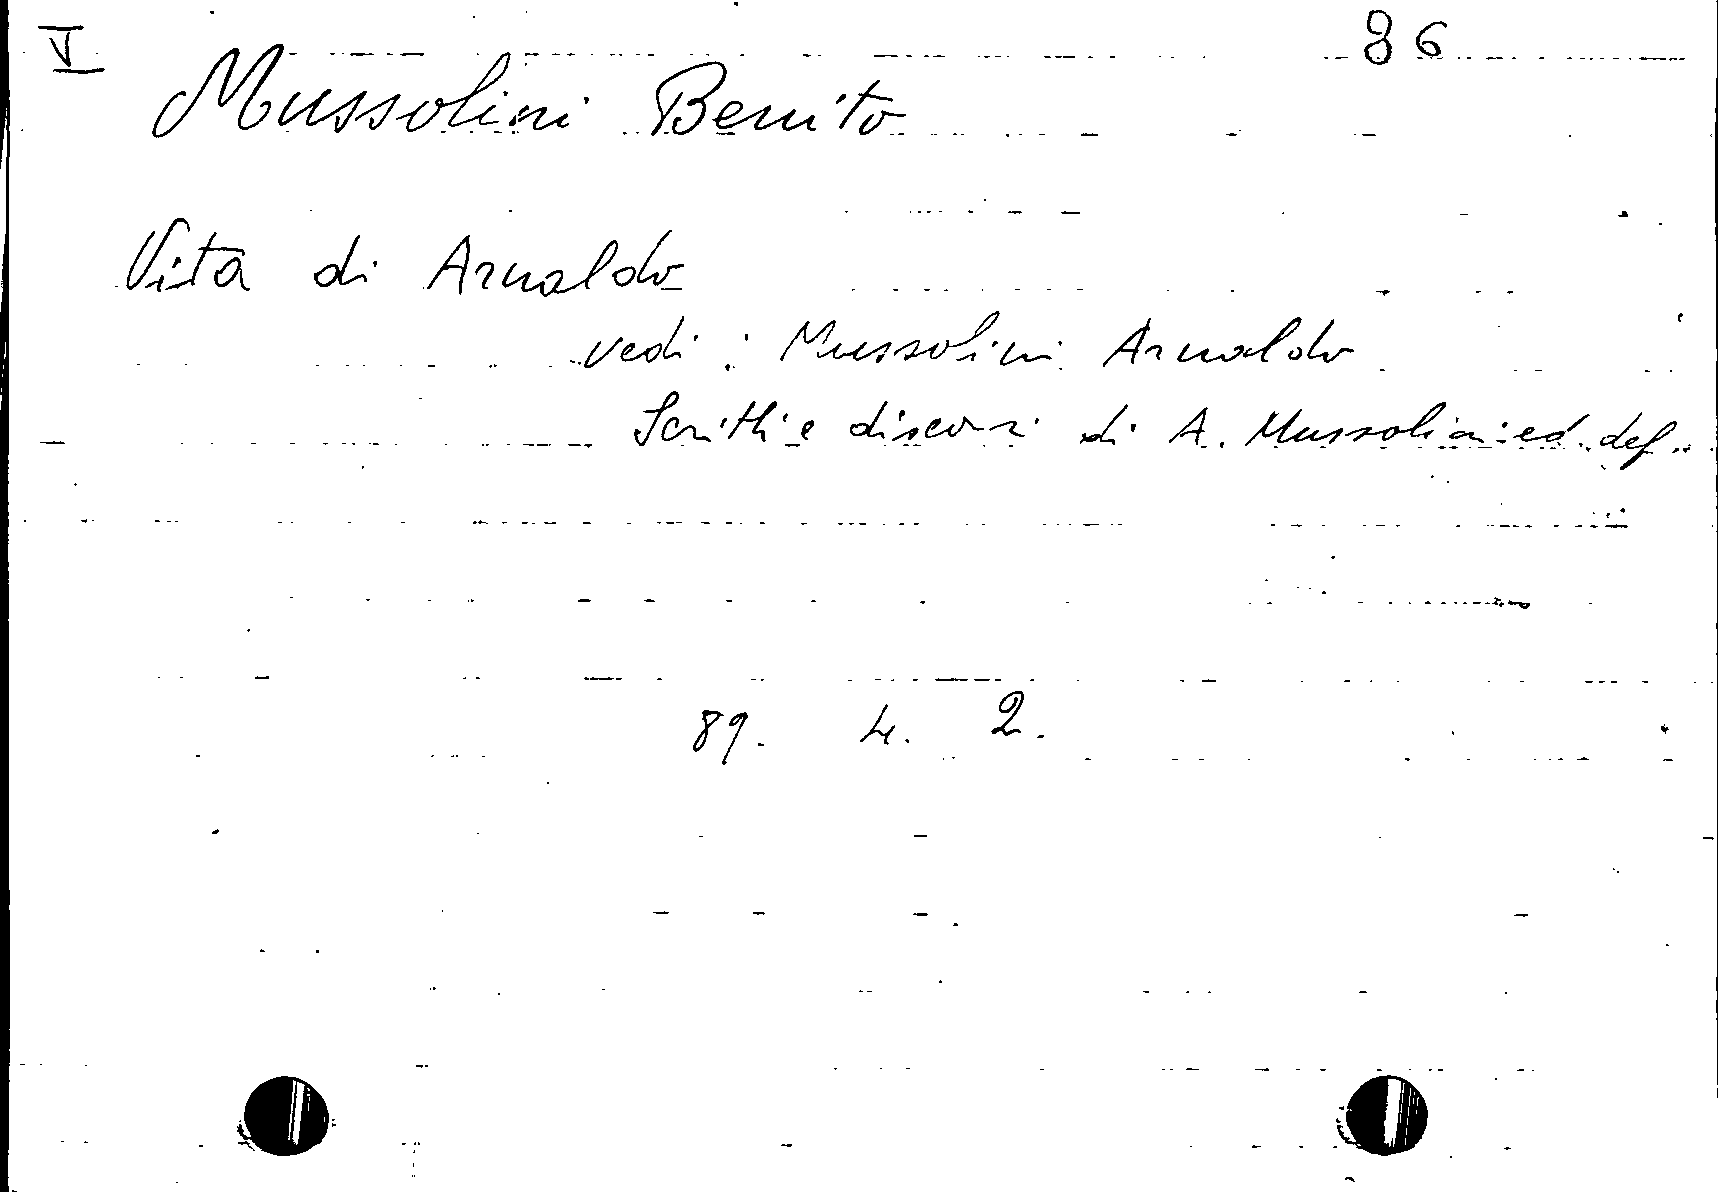 V 86
Mussolini Benito
Vita di Arnaldo
vedi : Mussolini Arnaldo
Scritti e discorsi di A. Mussolini ed. def.
89. 4. 2.